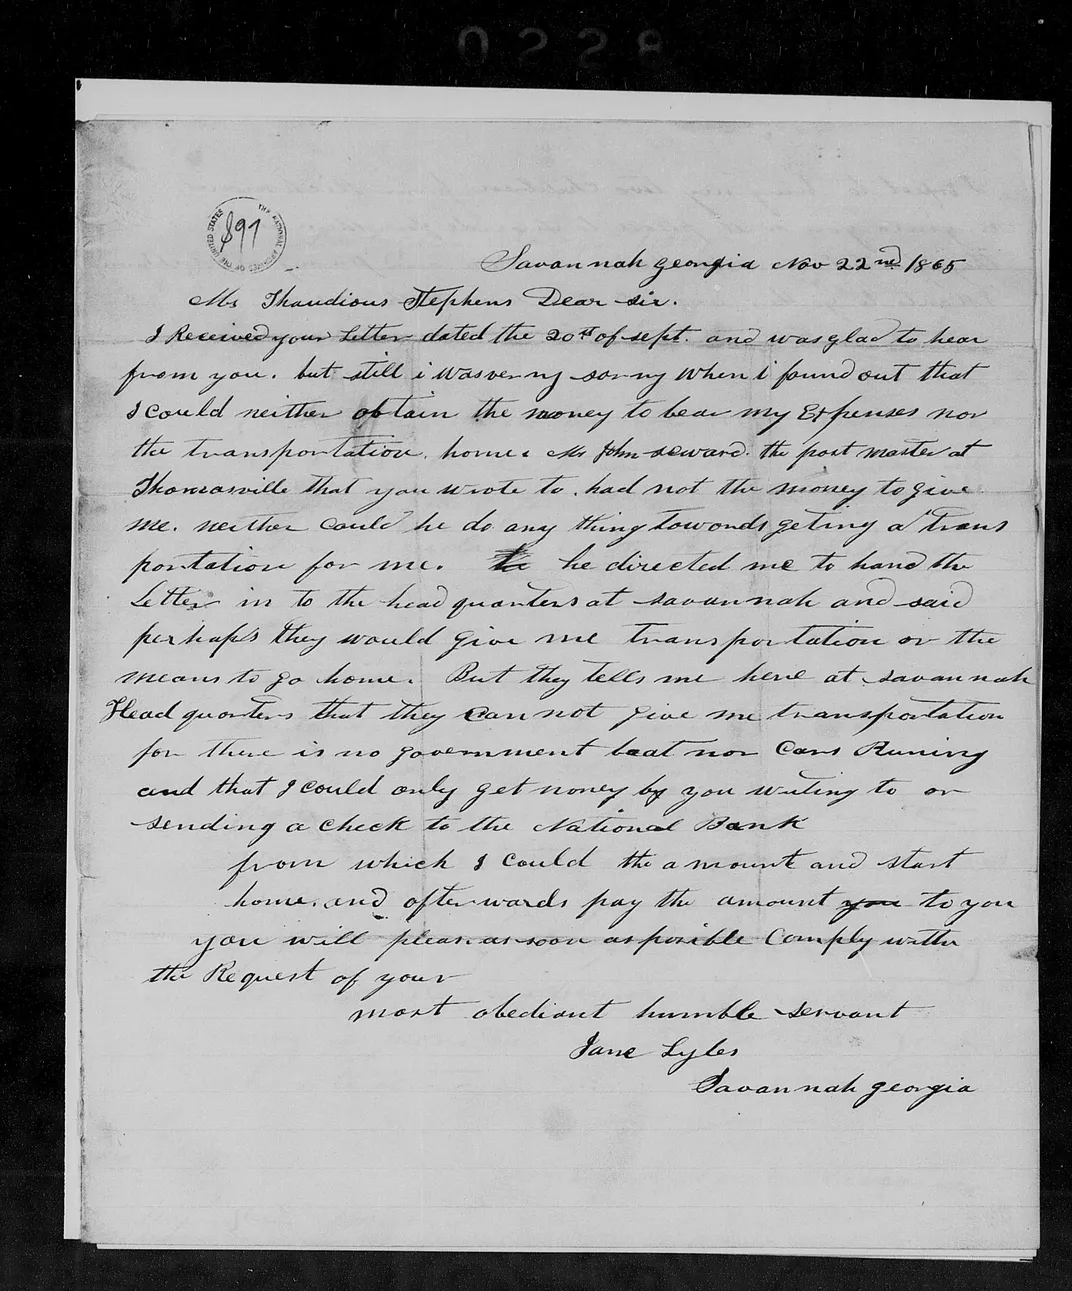 0228
THE NATIONAL ARCHIVES OF THE UNITED STATES
897
Savannah georgia Nov 22nd 1865
Mr Thaudious Stephens Dear sir.
I Received your Letter dated the 20th of sept. and was glad to hear
from you. but still i was very sorry when i found out that
I could neither obtain the money to bear my Expenses nor
the transportation. home. Mr John seward. the post master at
Thomasville that you wrote to. had not the money to give
me. neither could he do any thing towards geting a trans
portation for me. he directed me to hand the
Letter in to the head quarters at savannah and said
perhaps they would give me transportation or the
means to go home. But they tells me here at savannah
Head quarters that they can not give me transportation
for there is no government boat nor Cars Runing
and that I could only get money by you writing to or
sending a check to the National Bank
from which I could the amount and start
home. and afterwards pay the amount you to you
you will pleas as soon as posible Comply withe
the Request of your
most obediant humble servant
Jane Lyles
Savannah georgia